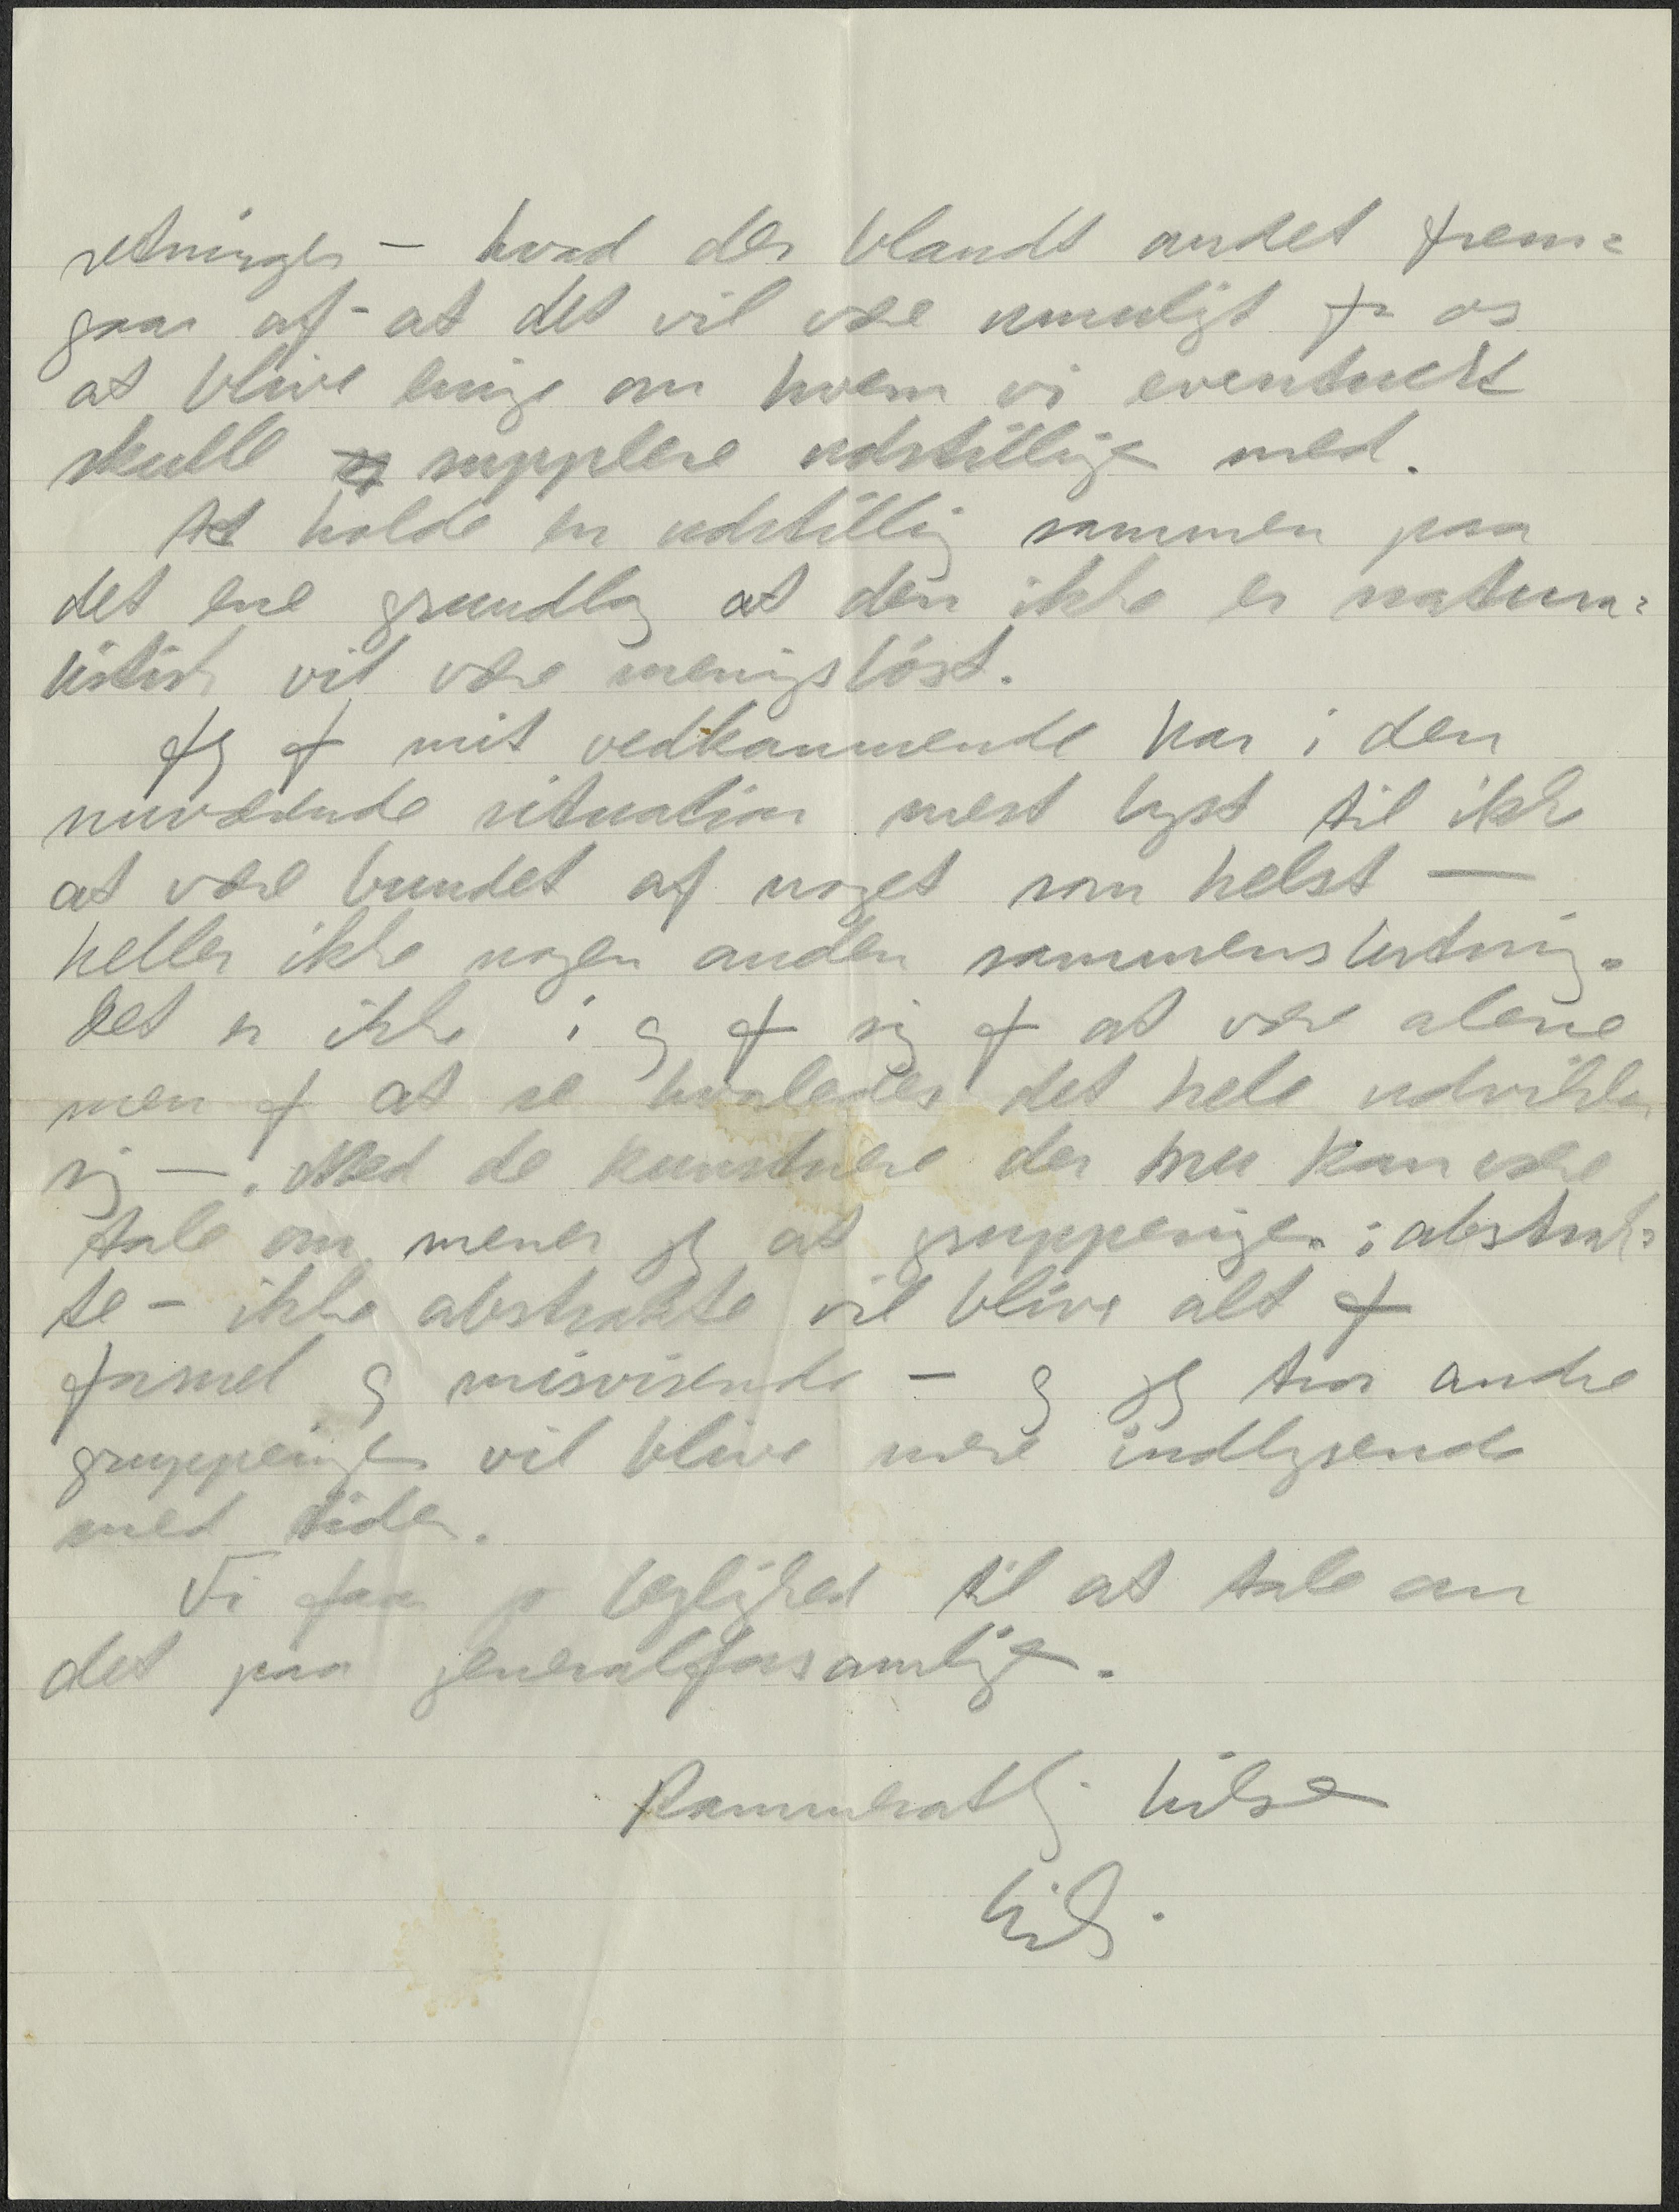 retninger – hvad der blandt andet frem=
gaar af – at det vil være umuligt for os
at blive enige om hvem vi eventuelt
skulle supplere udstillingen med.
At holde en udstilling sammen paa
det ene grundlag at den ikke er natura=
listisk vil være meningsløst.
Jeg f mit vedkommende har i den
nuværende situation mest lyst til ikke
at være bundet af noget som helst —
heller ikke nogen anden sammenslutning.
Det er ikke i og f sig f at være alene
men f at se hvorledes det hele udvikler
sig — . Med de kunstnere der nu kan være
tale om mener jeg at grupperingen i abstrak=
te – ikke abstrakte vil blive alt f
formel og misvisende – og jeg tror andre
grupperinger vil blive mere indlysende
med tiden.
Vi faar jo lejlighed til at tale om
det paa generalforsamlingen.
Kammeratlig hilsen